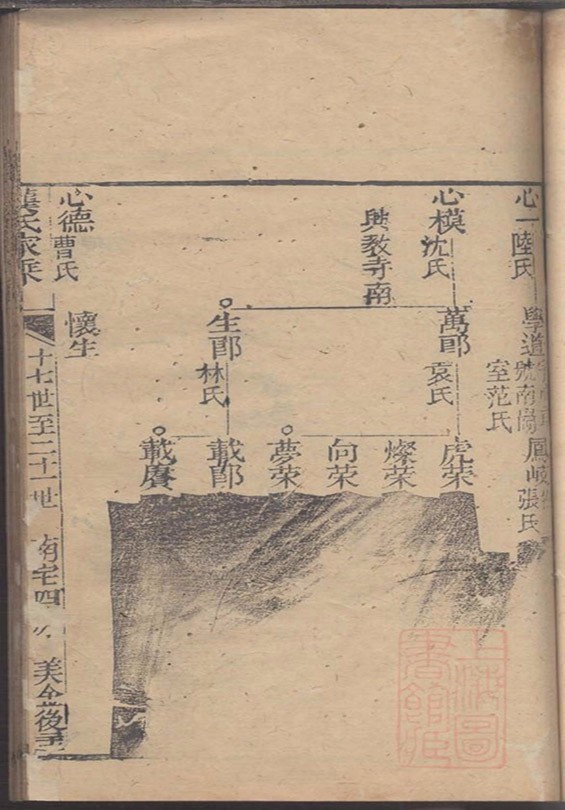 心一陸氏
學道
號南
室范氏
鳳岐
張氏
心模沈氏
興教寺南
萬郎袁氏
生郎林氏
虎荣
燦荣
向荣
夢荣
載郎
載賡
心德曹氏
懷生
龔氏家乘
十七世至二十一世
南宅四
美全後
上海圖書館藏